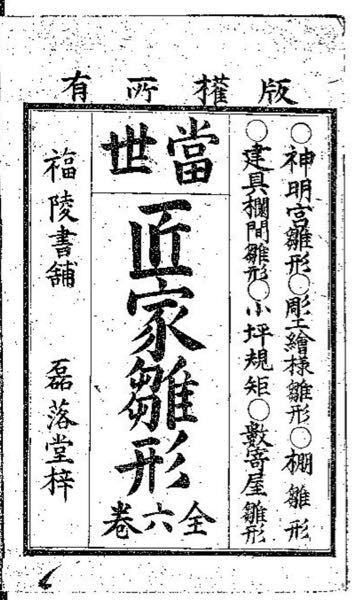 版權所有
○神明宮雛形○彫工繪様雛形○棚雛形
○建具欄間雛形○小坪規矩○數寄屋雛形
當世
匠家雛形
全六卷
福陵書舖 磊落堂梓